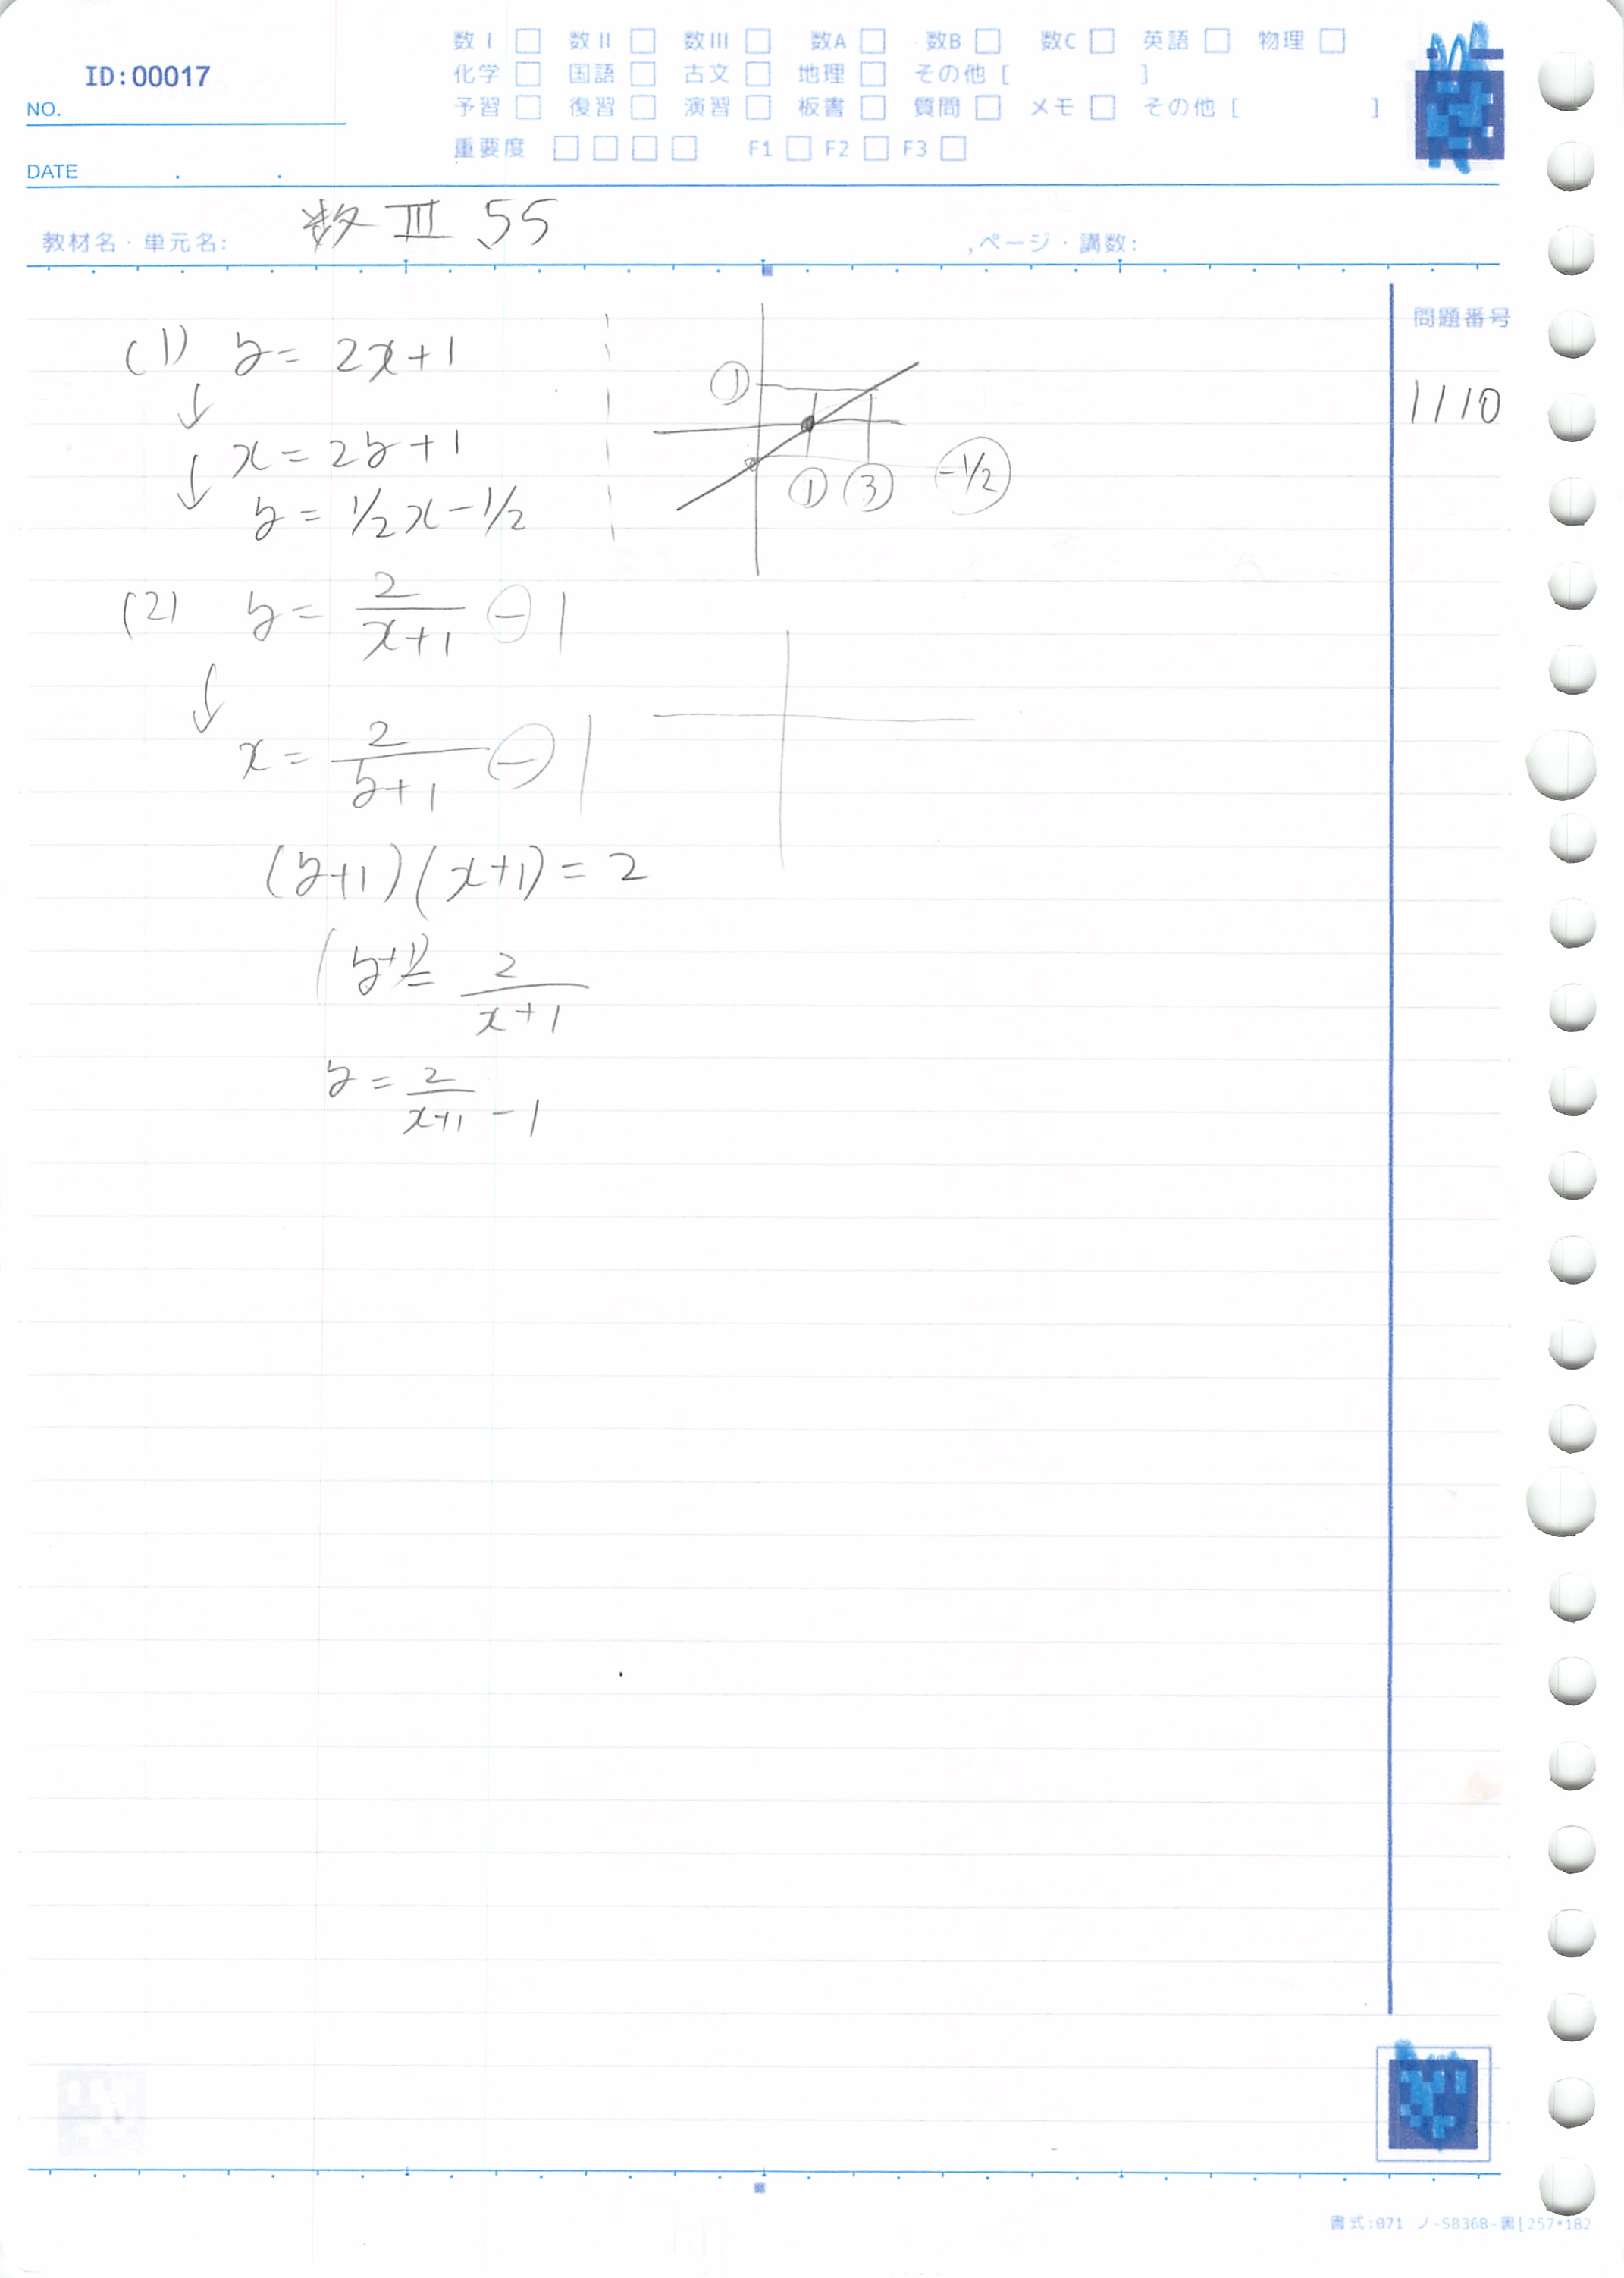 数I □ 数II □ 数III □ 数A □ 数B □ 数C □ 英語 □ 物理 □
ID:00017
化学 □ 国語 □ 古文 □ 地理 □ その他 [ ]
NO.
予習 □ 復習 □ 演習 □ 板書 □ 質問 □ メモ □ その他 [ ]
重要度 □ □ □ □ F1 □ F2 □ F3 □
DATE . .
教材名・単元名: 数III 55 ページ・講数:
問題番号
1110
(1) y = 2x+1
↓
x = 2y+1
↓
y = 1/2x-1/2
① ① ③ -1/2
(2) y = 2/(x+1) - 1
↓
x = 2/(y+1) - 1
(y+1)(x+1) = 2
(y+1) = 2/(x+1)
y = 2/(x+1) - 1
書式:071 ノ-S836B-裏[257*182